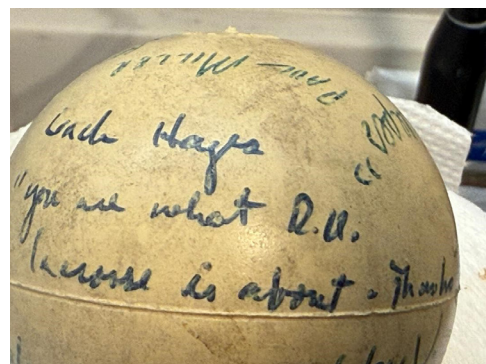 Paul Miller
Coach Hayes
"you are what D.U.
lacrosse is about. Thanks